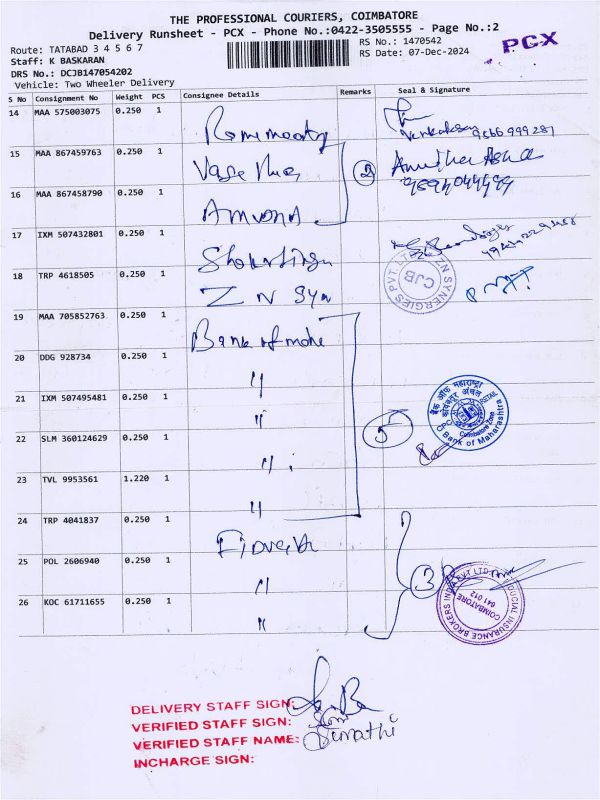 THE PROFESSIONAL COURIERS, COIMBATORE
Delivery Runsheet - PCX - Phone No.:0422-3505555 - Page No.:2
Route: TATABAD 3 4 5 6 7
RS No.: 1470542
PCX
Staff: K BASKARAN
RS Date: 07-Dec-2024
DRS No.: DCJB147054202
Vehicle: Two Wheeler Delivery
S No Consignment No Weight PCS Consignee Details Remarks Seal & Signature
14 MAA 575003075 0.250 1
9566999281
15 MAA 867459763 0.250 1
2
16 MAA 867458790 0.250 1
17 IXM 507432801 0.250 1
18 TRP 4618505 0.250 1 Z N Syn
ZN SYNERGIES PVT LTD
CJB
19 MAA 705852763 0.250 1 Bank of mahe
20 DDG 928734 0.250 1 "
21 IXM 507495481 0.250 1 "
बैंक ऑफ महाराष्ट्र
कोयंबतूर अंचल
Coimbatore Zone
Bank of Maharashtra
22 SLM 360124629 0.250 1 "
5
23 TVL 9953561 1.220 1 "
24 TRP 4041837 0.250 1
25 POL 2606940 0.250 1 "
3
26 KOC 61711655 0.250 1 "
INSURANCE BROKERS INDIA PVT LTD
COIMBATORE
641 012
DELIVERY STAFF SIGN:
VERIFIED STAFF SIGN:
VERIFIED STAFF NAME: Sumathi
INCHARGE SIGN: